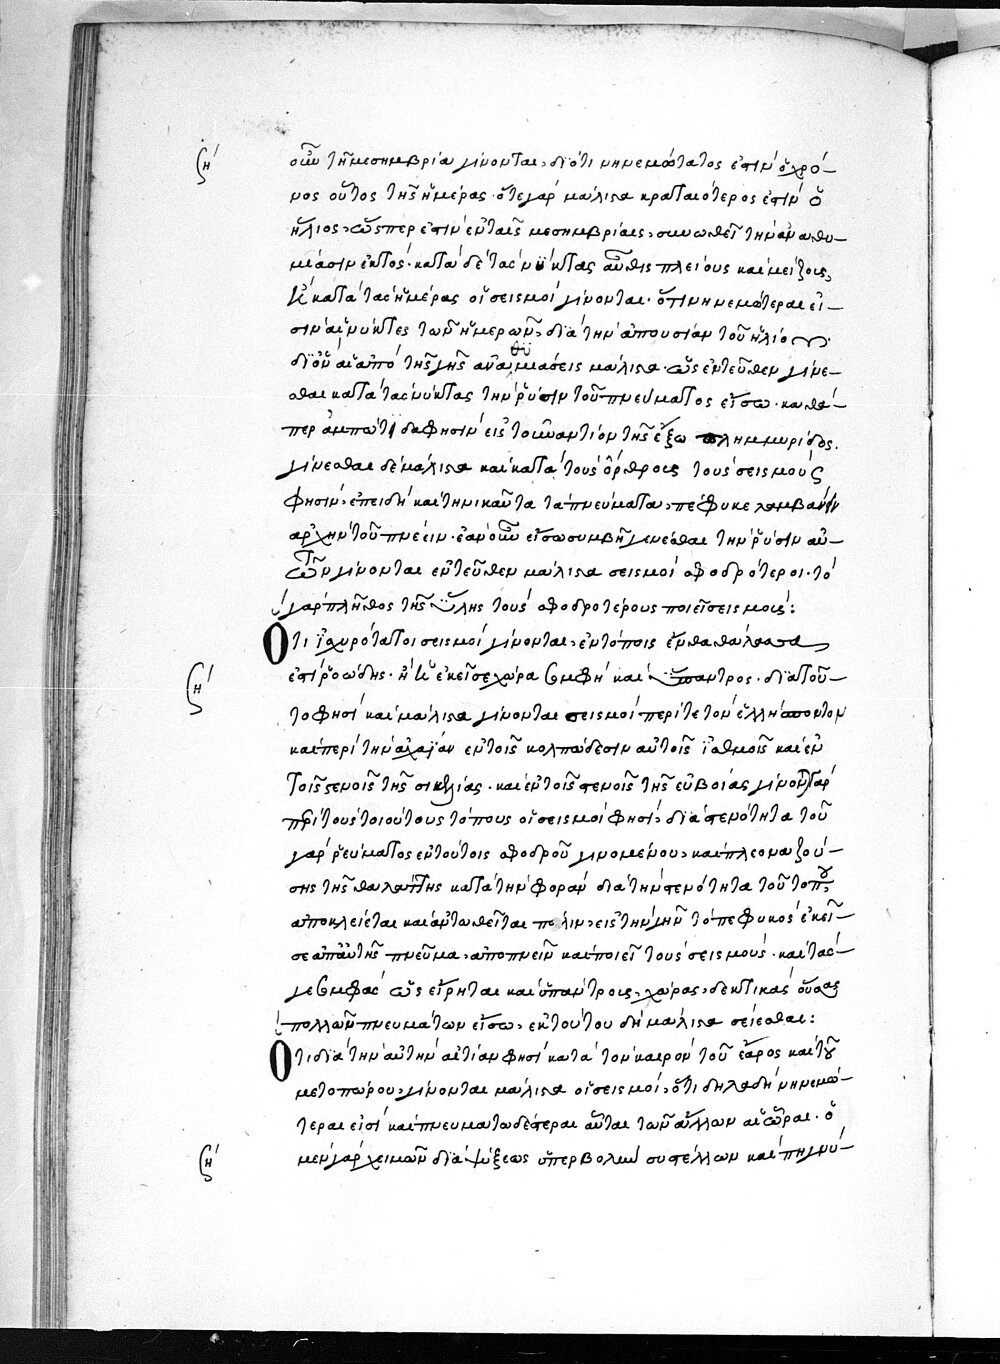 ση΄
οὖν τῇ μεσημβρίᾳ γίνονται, διότι νηνεμώτατος ἐστὶν ὁ χρό-
νος οὗτος τῆς ἡμέρας· ὅτε γὰρ μάλιστα κραταιότερος ἐστὶν ὁ
ἥλιος, ὥσπερ ἐστὶν ἐν ταῖς μεσημβρίαις, συνωθεῖ τὴν ἀναθυ-
μίασιν ἐντός· κατὰ δὲ τὰς νύκτας αὖθις πλείους καὶ μείζους,
ἢ κατὰ τὰς ἡμέρας οἱ σεισμοὶ γίνονται· ὅτι νηνεμώτεραι εἰ-
σὶν αἱ νύκτες τῶν ἡμερῶν, διὰ τὴν ἀπουσίαν τοῦ ἡλίου·
δι' ὃν αἱ ἀπὸ τῆς γῆς ἀναθυμιάσεις μάλιστα· ὡς ἐντεῦθεν γίνε-
σθαι κατὰ τὰς νύκτας τὴν ῥύσιν τοῦ πνεύματος εἴσω· καθά-
περ ἄμπωτι δα φησὶν εἰς τοὐναντίον τῆς ἔξω πλημμυρίδος.
γίνεσθαι δὲ μάλιστα καὶ κατὰ τοὺς ὄρθρους τοὺς σεισμούς
φησὶν, ἐπειδὴ καὶ τηνικαῦτα τὰ πνεύματα, πέφυκε λαμβάνειν
ἀρχὴν τοῦ πνέειν· ἐὰν οὖν εἴσω συμβῇ γενέσθαι τὴν ῥύσιν αὐ-
τῶν γίνονται ἐντεῦθεν μάλιστα σεισμοὶ σφοδρότεροι· τὸ
γὰρ πλῆθος τῆς ὕλης τοὺς σφοδροτέρους ποιεῖ σεισμούς:
Ὅτι ἰσχυρότατοι σεισμοὶ γίνονται, ἐν τόποις ἔνθα θάλασσα
ση΄
ἐστὶ ῥοώδης· ἢ ἡ ἐκεῖσε χώρα σομφὴ καὶ ὕπαντρος· διὰ τοῦ-
το φησὶ καὶ μάλιστα γίνονται σεισμοὶ περί τε τὸν ἑλλήσποντον
καὶ περὶ τὴν ἀχαΐαν ἐν τοῖς κολπώδεσιν αὐτοῖς ἰσθμοῖς καὶ ἐν
τοῖς στενοῖς τῆς σικελίας· καὶ ἐν τοῖς στενοῖς τῆς εὐβοίας γίνονται γὰρ
περὶ τοὺς τοιούτους τόπους οἱ σεισμοὶ φησὶ, διὰ στενότητα τοῦ
γὰρ ῥεύματος ἐν τούτοις σφοδροῦ γινομένου, καὶ πλεοναζού-
σης τῆς θαλάττης κατὰ τὴν φορὰν διὰ τὴν στενότητα τοῦ τόπου,
ἀποκλείεται καὶ ἀντωθεῖται πάλιν, εἰς τὴν γῆν τὸ πεφυκὸς ἐκεῖ-
σε ἀπ' αὐτῆς πνεῦμα, ἀποπνεῖν καὶ ποιεῖ τοὺς σεισμούς· καὶ τὰς
γε σομφὰς ὡς εἴρηται καὶ ὑπάντρους, χώρας, δεκτικὰς οὔσας
πολλῶν πνευμάτων εἴσω, ἐκ τούτου δὴ μάλιστα σείεσθαι:
Ὅτι διὰ τὴν αὐτὴν αἰτίαν φησὶ κατὰ τὸν καιρὸν τοῦ ἔαρος καὶ τοῦ
μετοπώρου, γίνονται μάλιστα οἱ σεισμοί, ὅτι δηλαδὴ νηνεμώ-
τεραι εἰσὶ καὶ πνευματωδέστεραι αὗται τῶν ἄλλων αἱ ὧραι· ὁ
ση΄
μὲν γὰρ χειμὼν διὰ ψύξεως ὑπερβολὴν συστέλλων καὶ πηγνύ-